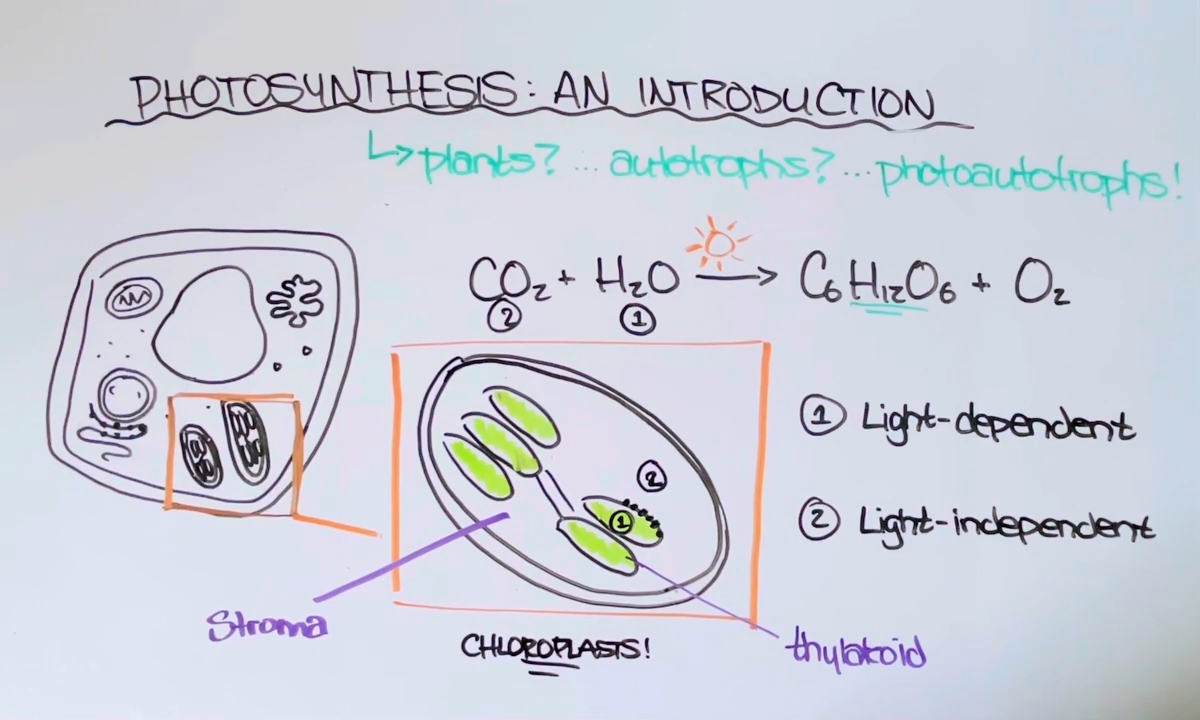 PHOTOSYNTHESIS: AN INTRODUCTION
↳ plants? ... autotrophs? ... photoautotrophs!
CO₂ + H₂O → C₆H₁₂O₆ + O₂
② ①
① Light-dependent
②
① ② Light-independent
Stroma
CHLOROPLASTS!
thylakoid